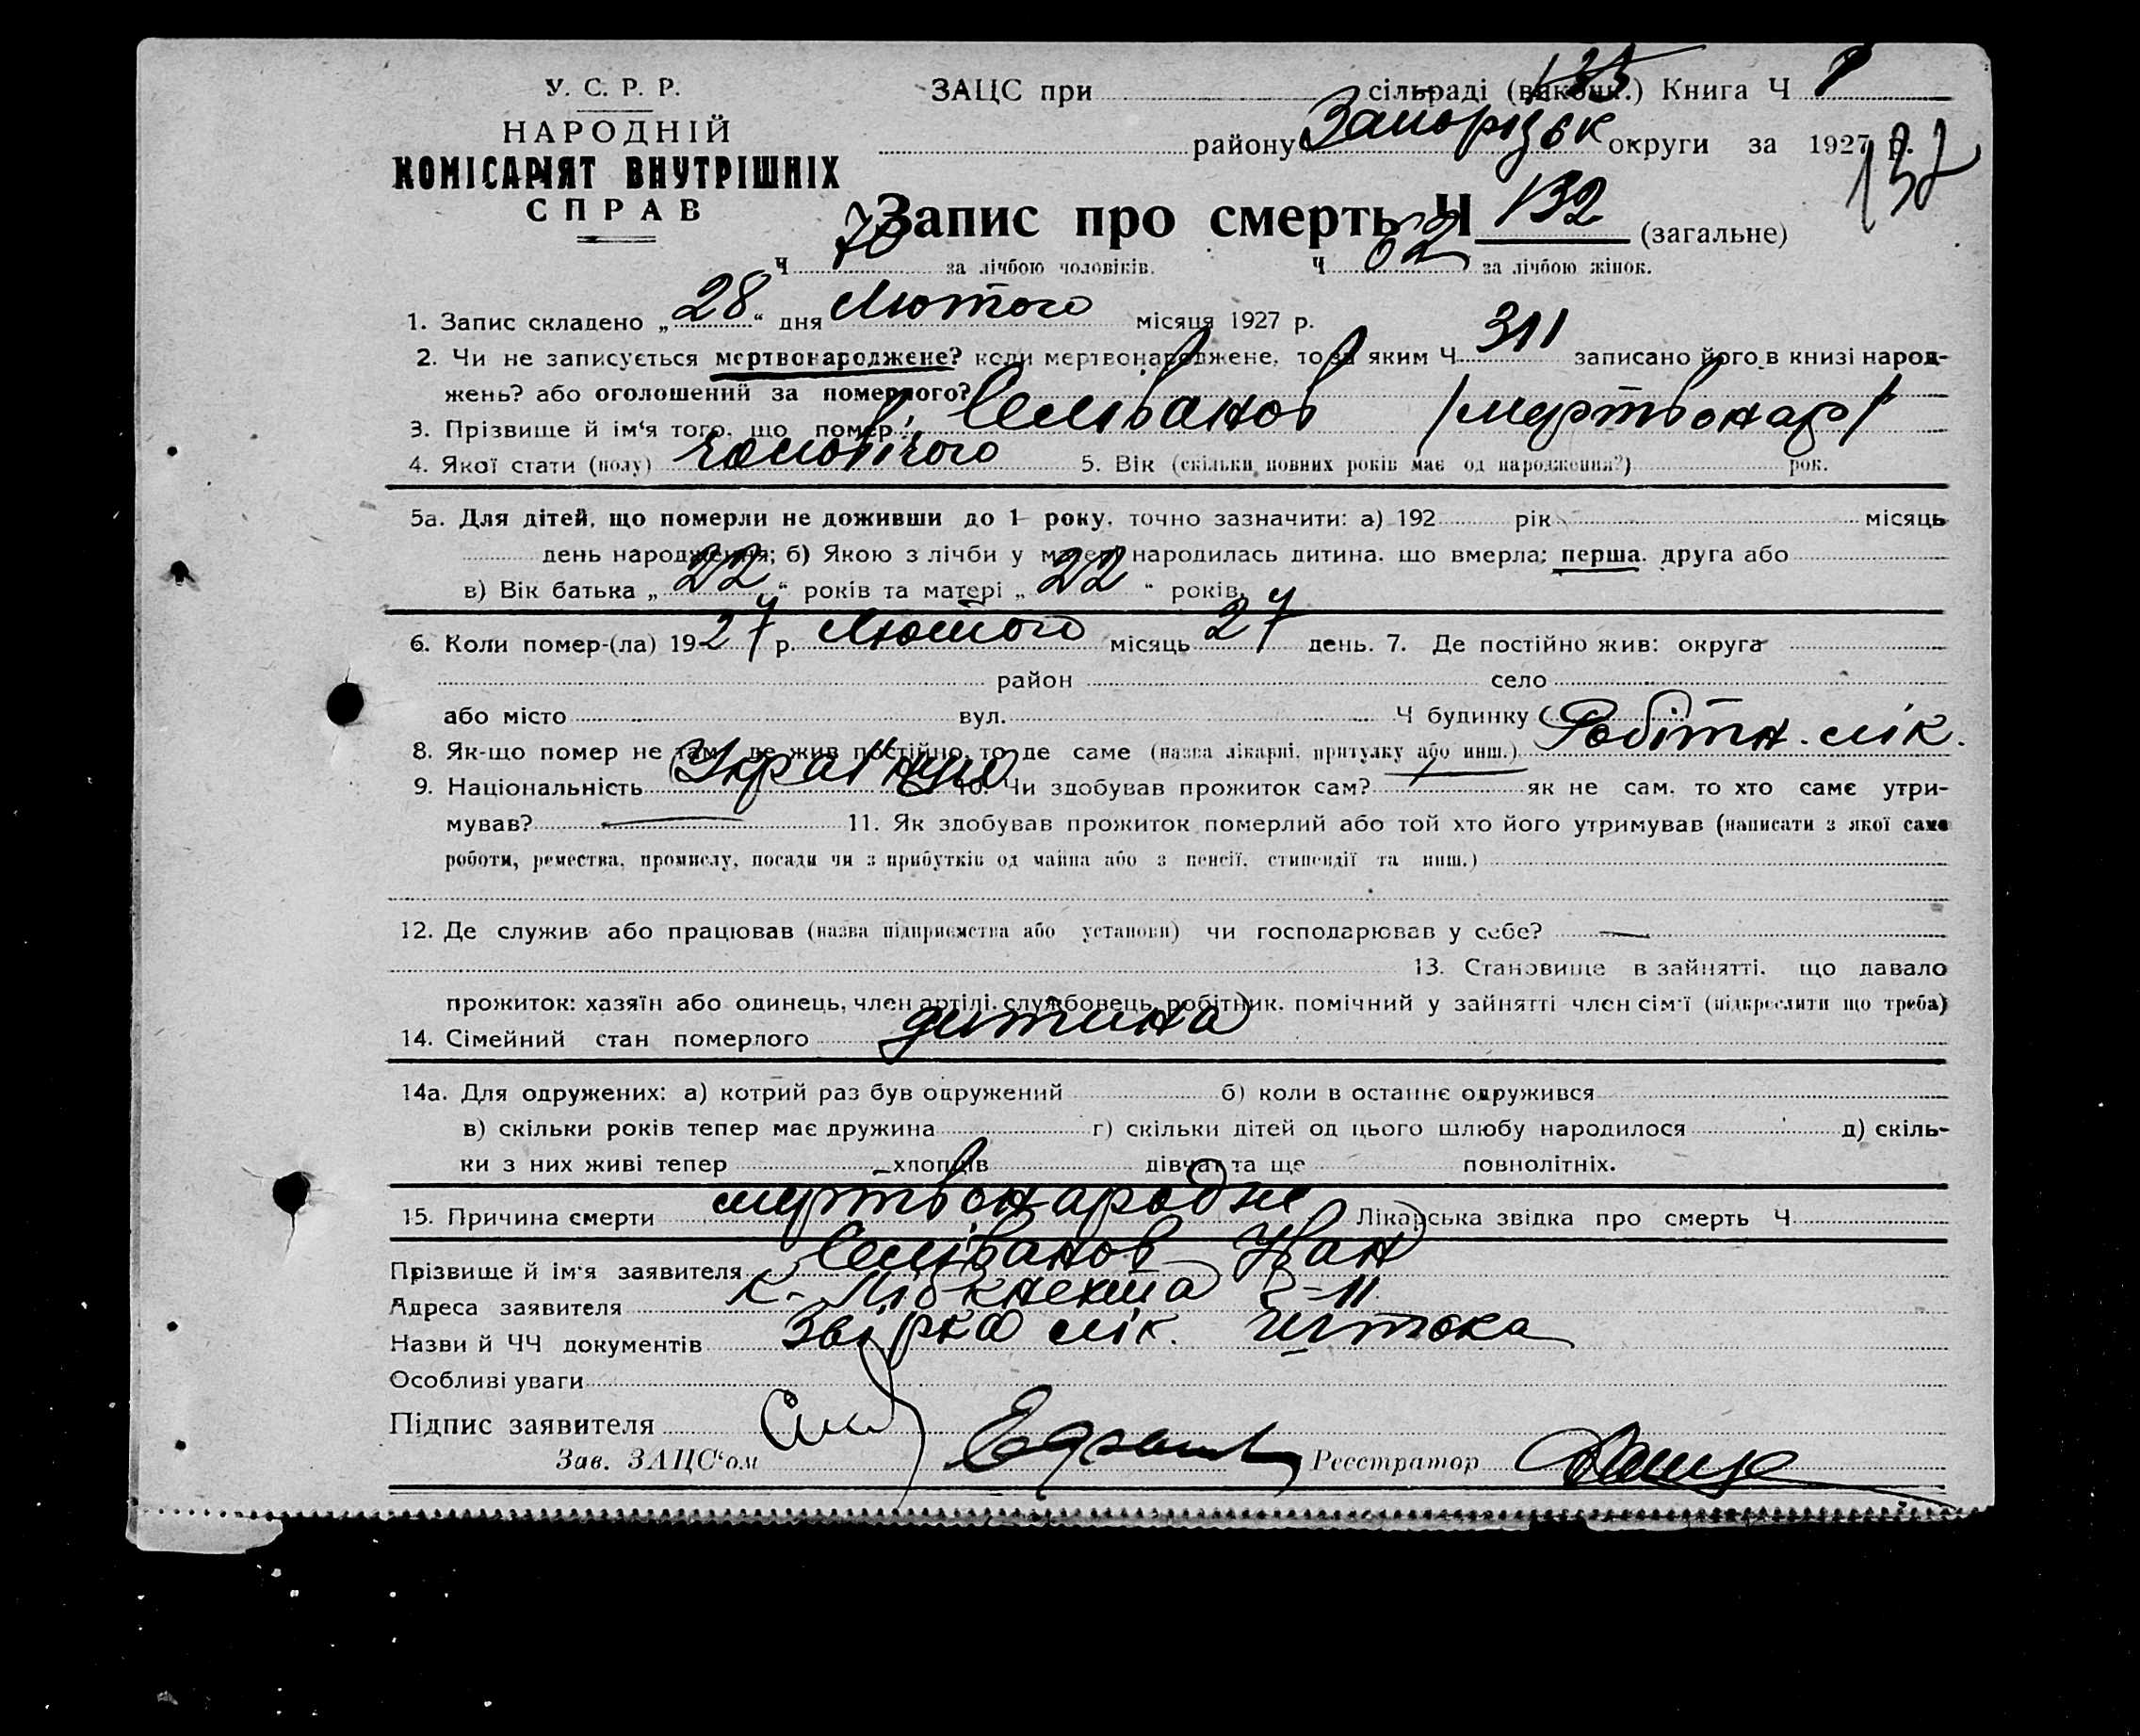 У. С. Р. Р.
НАРОДНІЙ
КОМІСАРІЯТ ВНУТРІШНІХ
СПРАВ
ЗАЦС при сільраді (виконк.) Книга Ч
району Запорізьк округи за 1927 р.
132
Запис про смерть Ч 132 (загальне)
Ч 70 за лічбою чоловіків. Ч 62 за лічбою жінок.
1. Запис складено „28“ дня Лютого місяця 1927 р.
2. Чи не записується мертвонароджене? коли мертвонароджене, то за яким Ч 311 записано його в книзі народ-
жень? або оголошений за померлого?
3. Прізвище й ім'я того, що помер Селіванов /мертвонар/
4. Якої стати (полу) чоловічого 5. Вік (скільки повних років має од народження?) рок.
5а. Для дітей, що померли не доживши до 1 року, точно зазначити: а) 192 рік місяць
день народження; б) Якою з лічби у матері народилась дитина, що вмерла; перша, друга або
в) Вік батька „22“ років та матері „22“ років.
6. Коли помер-(ла) 1927 р. Лютого місяць 27 день. 7. Де постійно жив: округа
район село
або місто вул. Ч будинку
8. Як-що помер не там, де жив постійно, то де саме (назва лікарні, притулку або инш.) Робітн. лік.
9. Національність Українця 10. Чи здобував прожиток сам? як не сам, то хто саме утри-
мував? 11. Як здобував прожиток померлий або той хто його утримував (написати з якої саме
роботи, ремества, промислу, посади чи з прибутків од майна або з пенсії, стипендії та инш.)
12. Де служив або працював (назва підприємства або установи) чи господарював у себе?
13. Становище в зайнятті, що давало
прожиток: хазяїн або одинець, член артілі, службовець, робітник, помічний у зайнятті член сім'ї (підкреслити що треба)
14. Сімейний стан померлого дитина
14а. Для одружених: а) котрий раз був одружений б) коли в останнє одружився
в) скільки років тепер має дружина г) скільки дітей од цього шлюбу народилося д) скіль-
ки з них живі тепер хлопців дівчат та ще повнолітніх.
15. Причина смерти мертвонародне Лікарська звідка про смерть Ч
Прізвище й ім'я заявителя Селіванов Іван
Адреса заявителя К. Лібкнехта 2-11
Назви й ЧЧ документів лік.
Особливі уваги
Підпис заявителя
Зав. ЗАЦС'ом Реєстратор